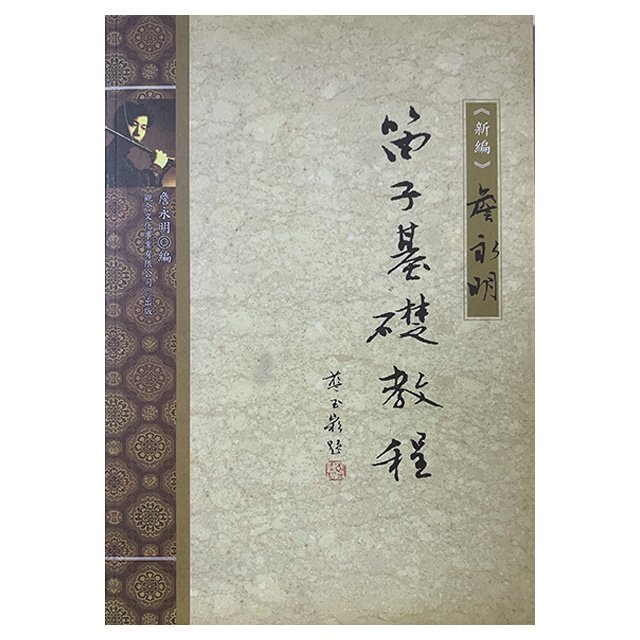 《新編》詹永明
笛子基礎教程
龔玉嶺題
詹永明◎編
觀念文化事業有限公司◎出版